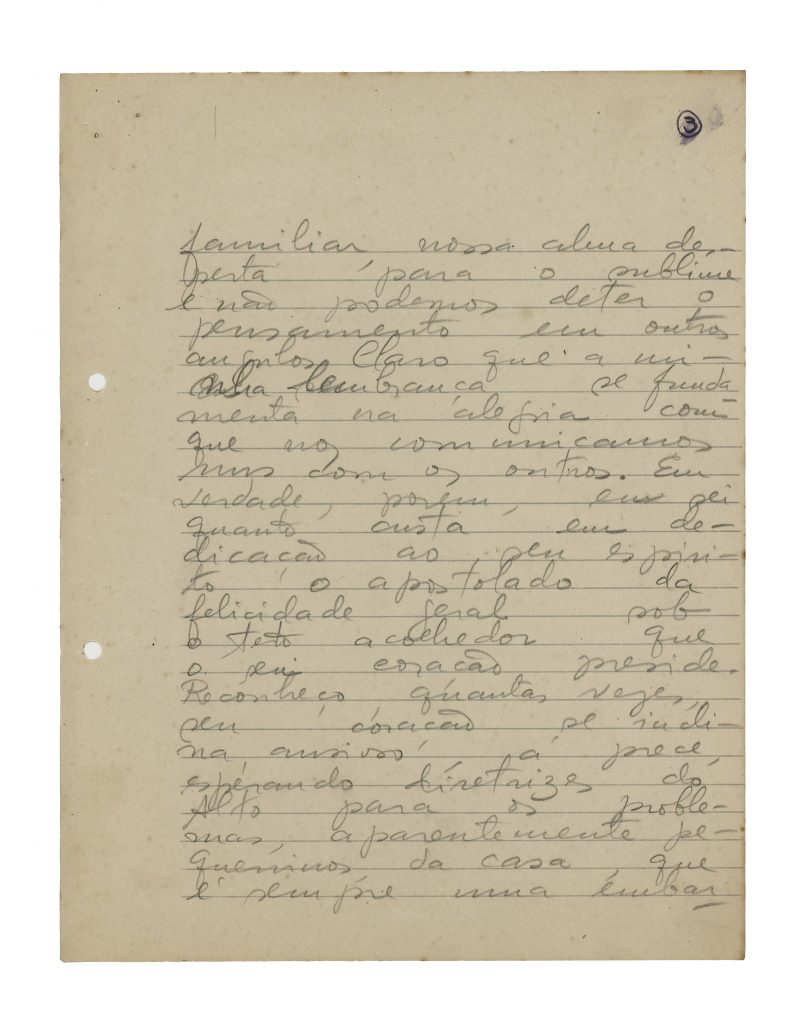 3
familiar nossa alma des-
perta para o sublime
e não podemos deter o
pensamento em outros
angulos. Claro que a mi-
nha lembrança se funda
menta na alegria com
que nos comunicamos
uns com os outros. Em
verdade, porém, eu sei
quanto custa em de-
dicacão ao seu espiri-
to o apostolado da
felicidade geral sob
o teto acolhedor que
o seu coracão preside.
Reconheço quantas vezes,
seu coracão se incli-
na ansioso á prece,
esperando diretrizes do
Alto para os proble-
mas, aparentemente pe-
queninos da casa, que
é sempre uma embar